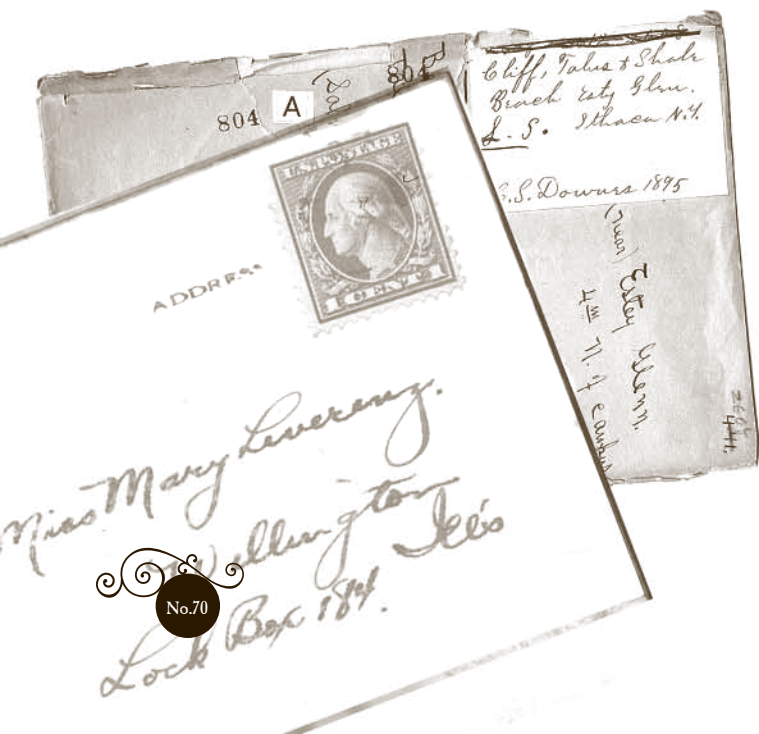 804
A
804
Cliff, Talus & Shale
Beach Esty Glen.
L. S. Ithaca N.Y.
S. Downes 1895
(near) Estey Glenn.
4 m N. of
U.S. POSTAGE
1 CENT 1
ADDRESS
Miss Mary Leverenz.
Wellington
Ill's
Lock Box 184.
No.70